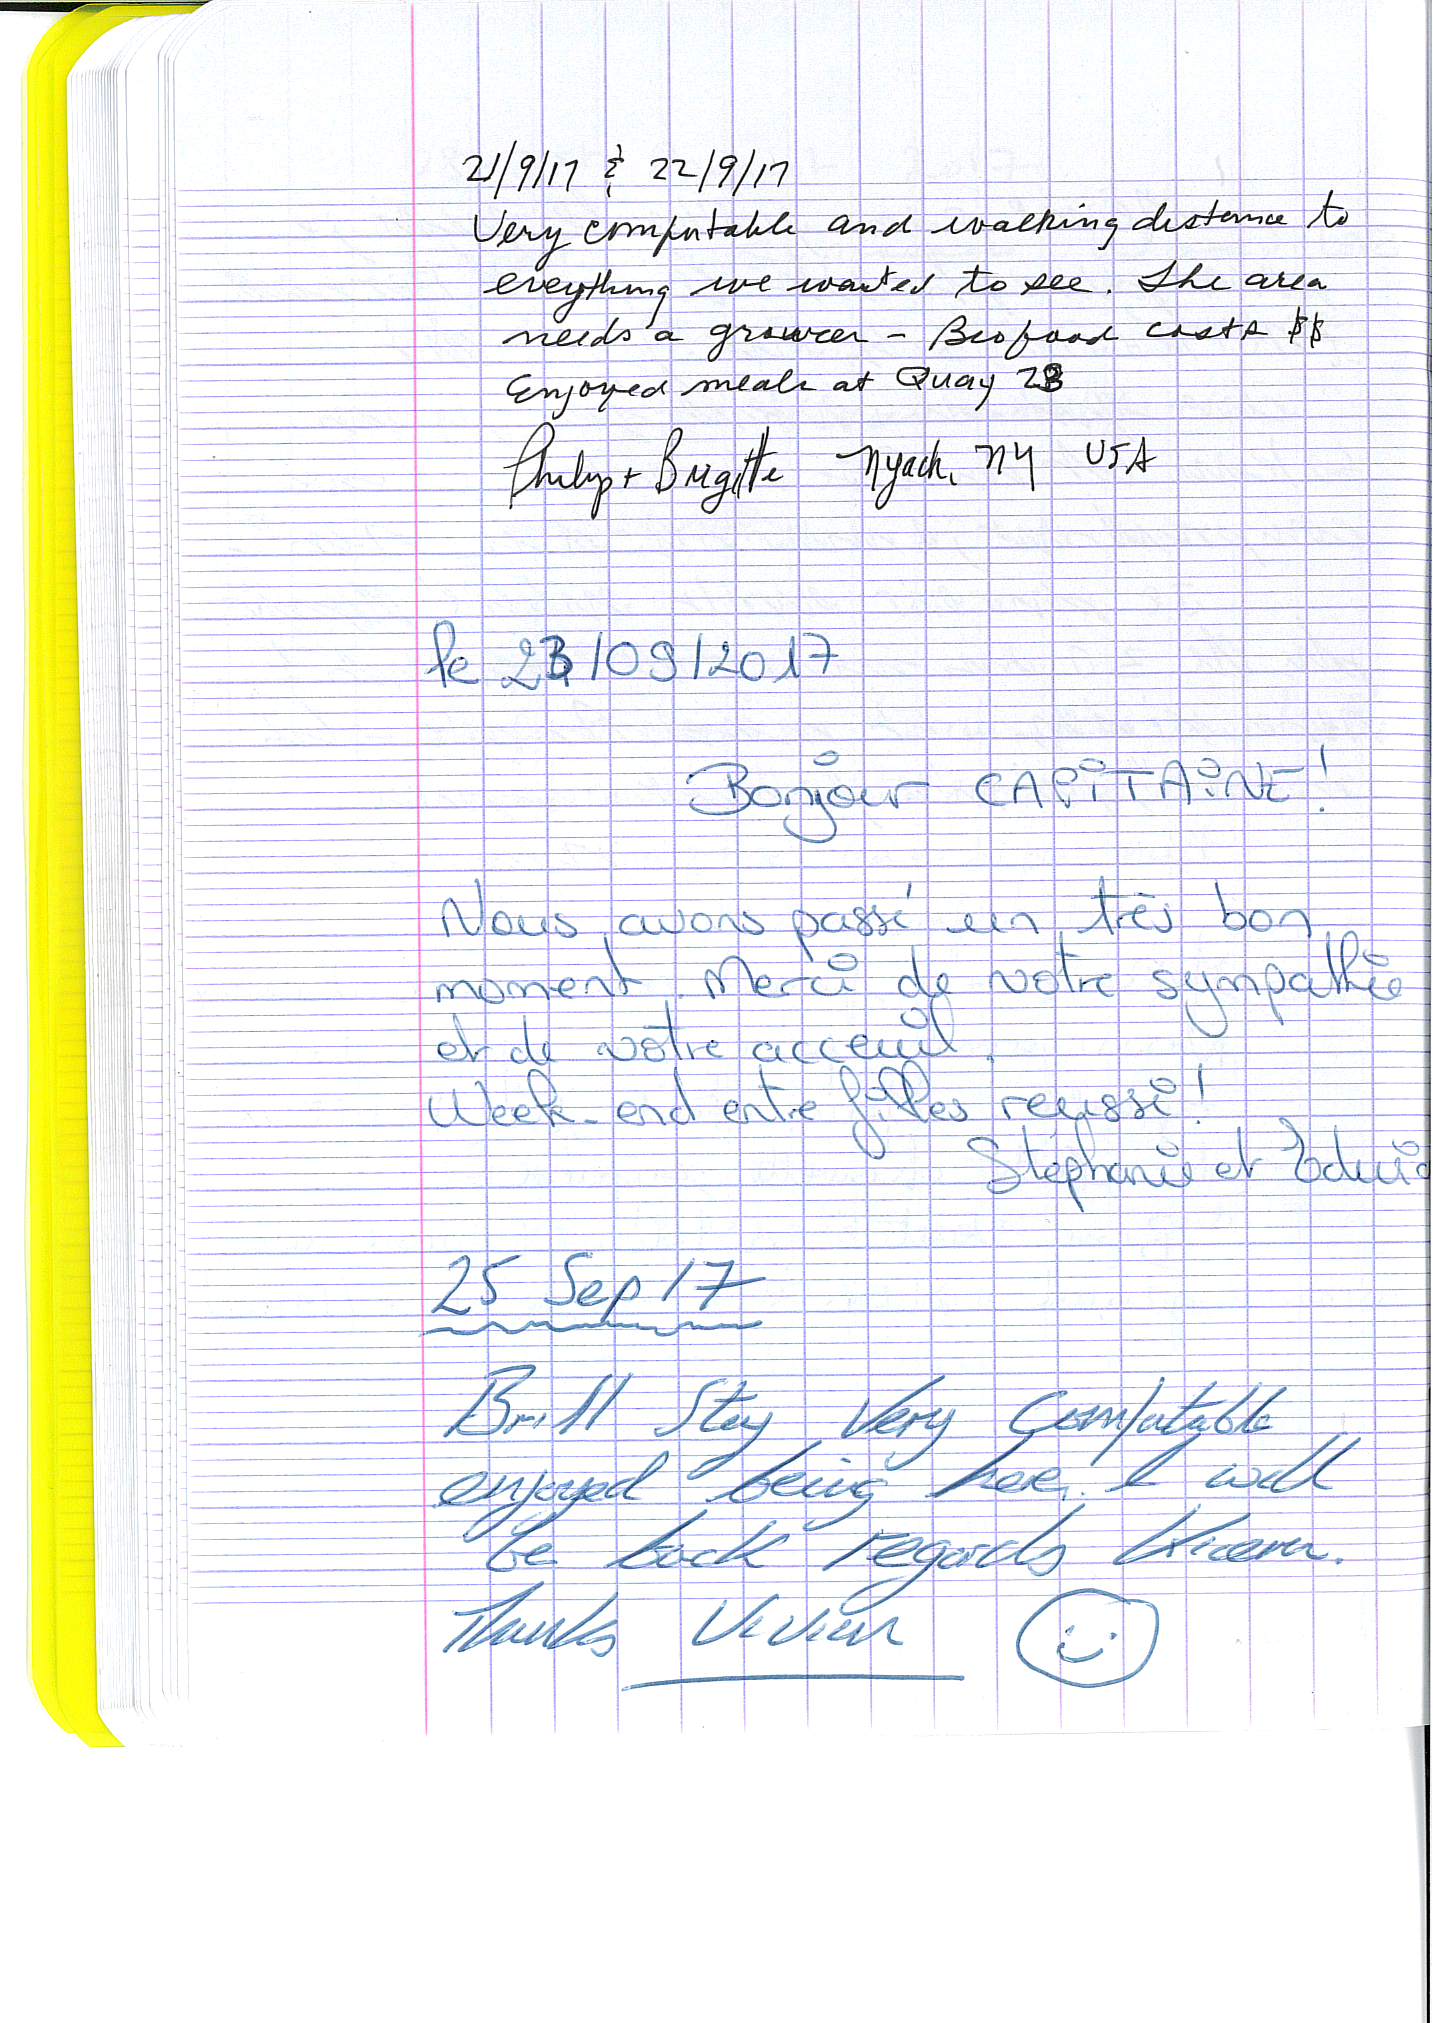 21/9/17 & 22/9/17
Very comfortable and walking distance to
everything we wanted to see. The area
needs a grower - Biofood costs $$
Enjoyed meals at Quay 28
Philip + Brigitte Nyack, NY USA
le 23/09/2017
Bonjour CAPiTAiNE !
Nous avons passé un très bon
moment. Merci de votre sympathie
et de votre acceuil.
Week-end entre filles reussi !
Stéphanie et
25 Sep 17
Brill Stay Very Comfortable
enjoyed being here. I will
be back regards
Thanks Vivien